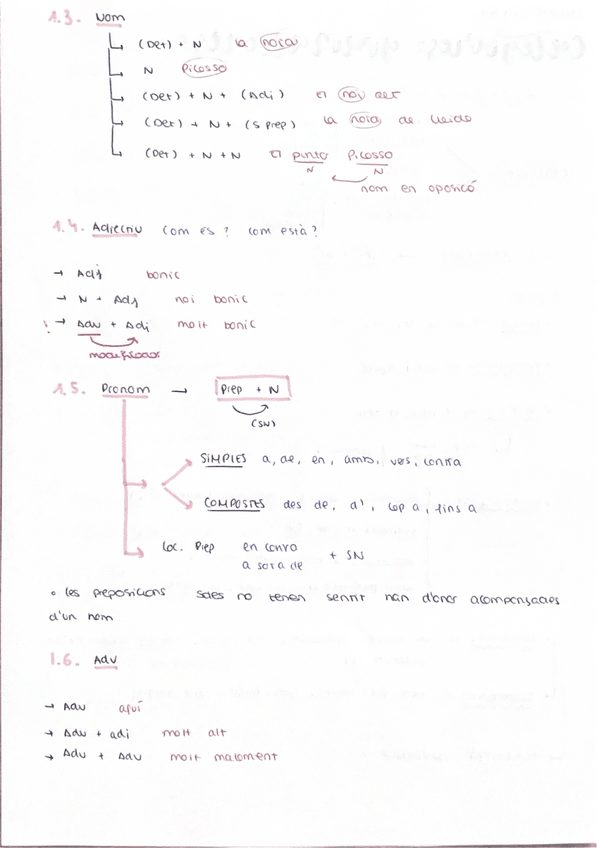 1.3. Nom
(Det) + N la noia
N Picasso
(Det) + N + (Adj) El noi alt
(Det) + N + (S Prep) la noia de Lleida
(Det) + N + N El pintor Picasso
N N
nom en oposicó
1.4. Adjectiu Com és? Com està?
→ Adj bonic
→ N + Adj noi bonic
! → Adv + Adj molt bonic
modificador
1.5. Pronom → Prep + N
(SN)
SIMPLES a, de, en, amb, vers, contra
COMPOSTES des de, d', cap a, fins a
Loc. Prep en contra
a sota de + SN
• Les preposicions soles no tenen sentit han d'anar acompanyades
d'un nom
1.6. Adv
→ Adv aquí
→ Adv + adj molt alt
→ Adv + Adv molt malament